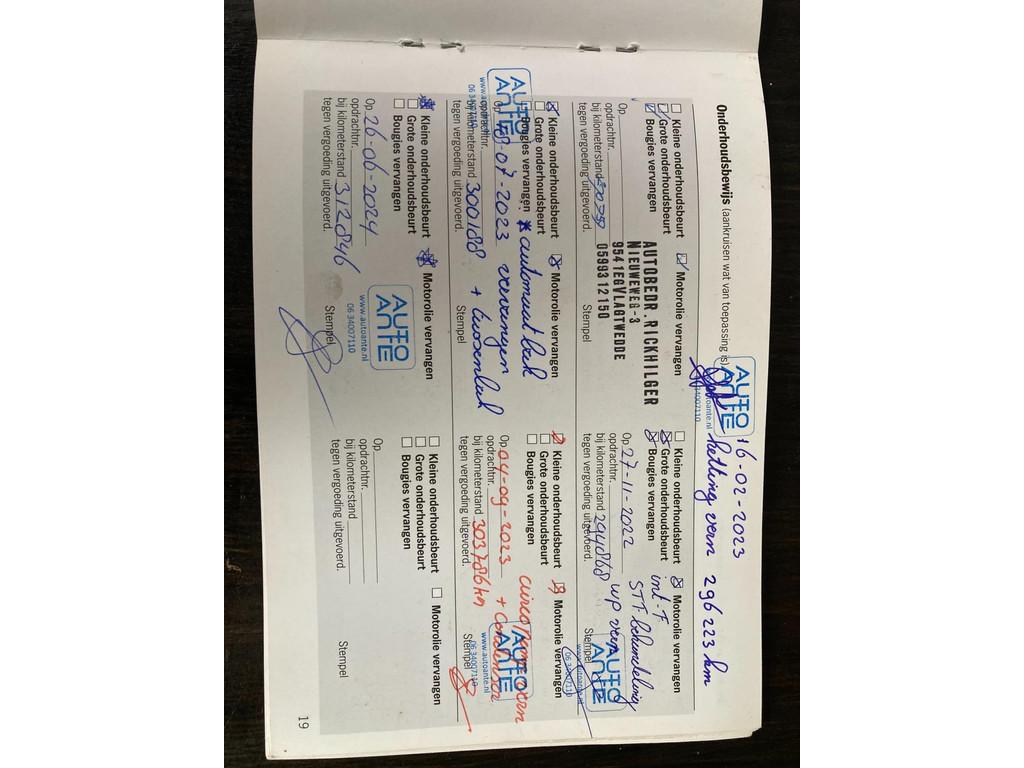 Onderhoudsbewijs (aankruisen wat van toepassing is)
AUTO
ANTE
autoante.nl
34007110
16-02-2023
ketting vern 296223 km
Kleine onderhoudsbeurt
Grote onderhoudsbeurt
Bougies vervangen
Motorolie vervangen
Op
opdrachtnr.
bij kilometerstand
tegen vergoeding uitgevoerd.
AUTOBEDR. RICKHILGER
NIEUWEWEG-3
9541EG VLAGTWEDDE
0599312150
Stempel
Kleine onderhoudsbeurt
Grote onderhoudsbeurt
Bougies vervangen
Motorolie vervangen
int-F
STT-behandeling
Op 27-11-2022
wp vern
opdrachtnr.
bij kilometerstand 294868
tegen vergoeding uitgevoerd.
AUTO
ANTE
www.autoante.nl
06 34007110
Stempel
AUTO
ANTE
www.autoante.nl
06 34007110
Kleine onderhoudsbeurt
Grote onderhoudsbeurt
Bougies vervangen
Motorolie vervangen
automaatbak
Op 18-07-2023 vervangen
opdrachtnr.
bij kilometerstand 300188 +
tegen vergoeding uitgevoerd.
Stempel
Kleine onderhoudsbeurt
Grote onderhoudsbeurt
Bougies vervangen
Motorolie vervangen
aircopomp vern
Op 04-09-2023 + Condensor
opdrachtnr.
bij kilometerstand 303786km
tegen vergoeding uitgevoerd.
AUTO
ANTE
www.autoante.nl
06 34007110
Stempel
Kleine onderhoudsbeurt
Grote onderhoudsbeurt
Bougies vervangen
Motorolie vervangen
Op 26-06-2024
opdrachtnr.
bij kilometerstand 312846
tegen vergoeding uitgevoerd.
AUTO
ANTE
www.autoante.nl
06 34007110
Stempel
Kleine onderhoudsbeurt
Grote onderhoudsbeurt
Bougies vervangen
Motorolie vervangen
Op
opdrachtnr.
bij kilometerstand
tegen vergoeding uitgevoerd.
Stempel
19